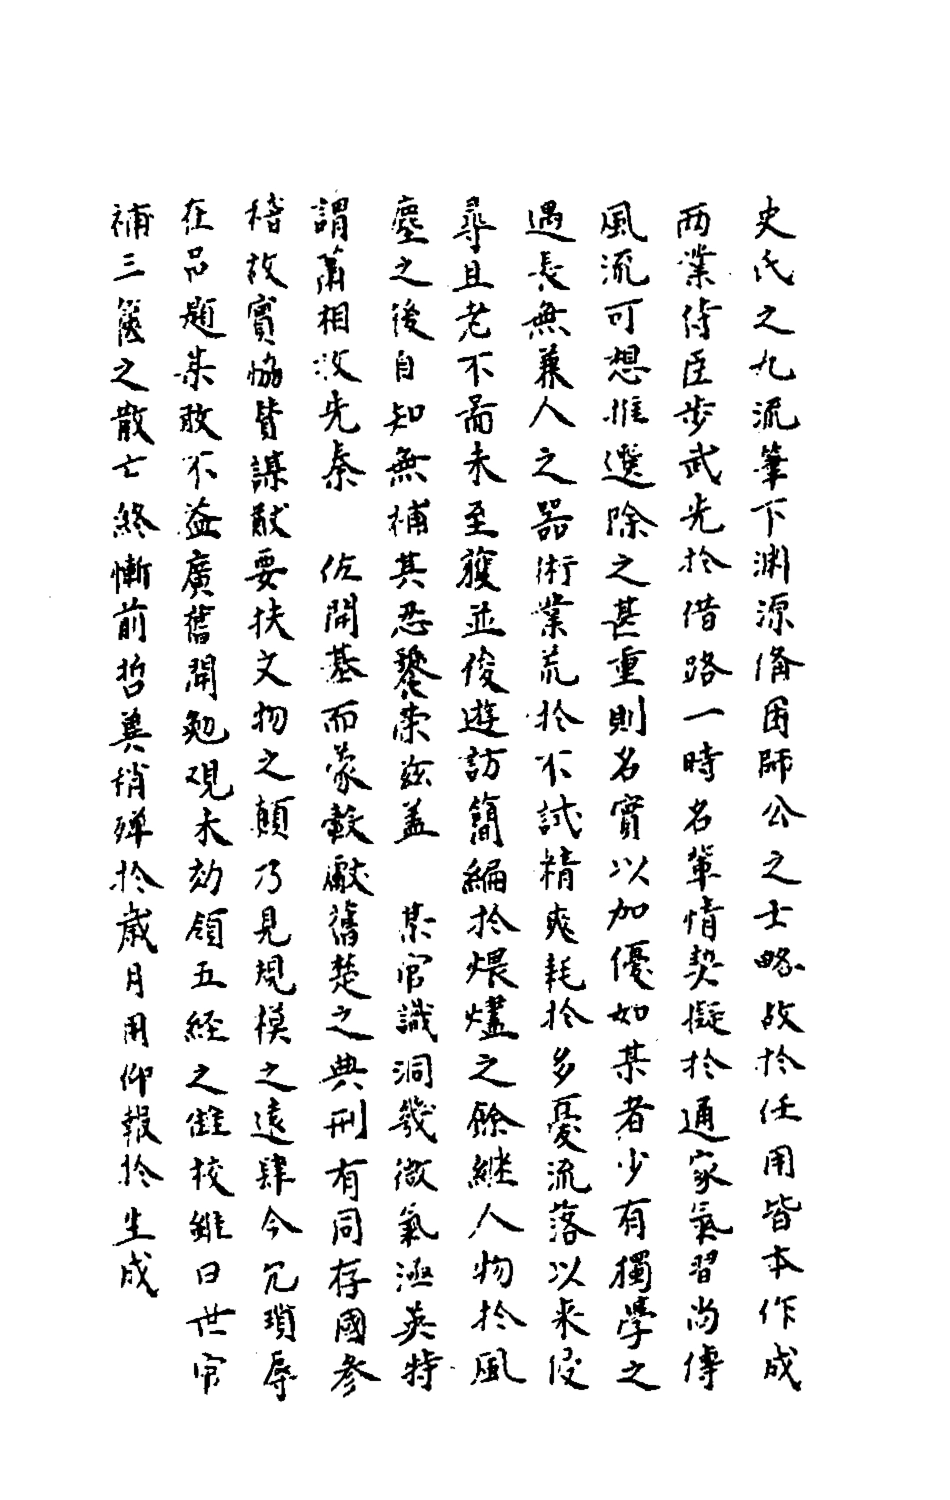 史氏之九流筆下淵源脩困師公之士略故於任用皆本作成
兩業侍臣步武光於借路一時名輩情契擬於通家氣習尚傳
風流可想惟選除之甚重則名實以加優如某者少有獨學之
遇長無兼人之器術業荒於不試精爽耗於多憂流落以来侵
尋且老不啚未至獲並俊遊訪簡編於煨燼之餘継人物於風
塵之後自知無補其忍饕荣兹盖 某官識洞幾微氣凾英特
謂蕭相收先秦 佐開基而蒙毅獻舊楚之典刑有同存國參
稽故實恊賛謀猷要扶文物之顛乃見規模之遠肆今冗瑣辱
在品題某敢不益廣舊聞勉覌未効領五経之讎校雖曰世官
補三篋之散亡終慚前哲冀稍殫於歳月用仰報於生成